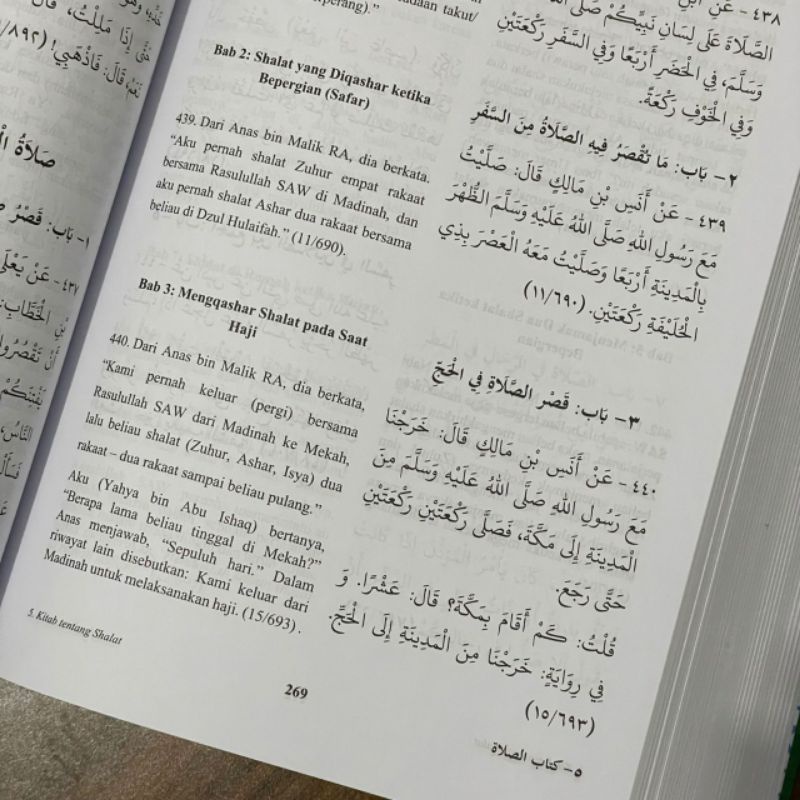 perang)."
Bab 2: Shalat yang Diqashar ketika
Bepergian (Safar)
439. Dari Anas bin Malik RA, dia berkata.
"Aku pernah shalat Zuhur empat rakaat
bersama Rasulullah SAW di Madinah, dan
aku pernah shalat Ashar dua rakaat bersama
beliau di Dzul Hulaifah." (11/690).
Bab 3: Mengqashar Shalat pada Saat
Haji
440. Dari Anas bin Malik RA, dia berkata,
"Kami pernah keluar (pergi) bersama
Rasulullah SAW dari Madinah ke Mekah,
lalu beliau shalat (Zuhur, Ashar, Isya) dua
rakaat – dua rakaat sampai beliau pulang."
Aku (Yahya bin Abu Ishaq) bertanya,
"Berapa lama beliau tinggal di Mekah?"
Anas menjawab, "Sepuluh hari." Dalam
riwayat lain disebutkan: Kami keluar dari
Madinah untuk melaksanakan haji. (15/693).
5. Kitab tentang Shalat
269
الصَّلَاةَ عَلَى لِسَانِ نَبِيِّكُمْ صَلَّى
وَسَلَّمَ، فِي الْحَضَرِ أَرْبَعًا وَفِي السَّفَرِ رَكْعَتَيْنِ
وَفِي الْخَوْفِ رَكْعَةً.
٢- بَاب: مَا تُقْصَرُ فِيهِ الصَّلَاةُ مِنَ السَّفَرِ
٤٣٩- عَنْ أَنَسِ بْنِ مَالِكٍ قَالَ: صَلَّيْتُ
مَعَ رَسُولِ اللهِ صَلَّى اللهُ عَلَيْهِ وَسَلَّمَ الظُّهْرَ
بِالْمَدِينَةِ أَرْبَعًا وَصَلَّيْتُ مَعَهُ الْعَصْرَ بِذِي
الْحُلَيْفَةِ رَكْعَتَيْنِ. (١١/٦٩٠)
٣- بَاب: قَصْر الصَّلَاةِ فِي الْحَجِّ
٤٤٠- عَنْ أَنَسِ بْنِ مَالِكٍ قَالَ: خَرَجْنَا
مَعَ رَسُولِ اللهِ صَلَّى اللهُ عَلَيْهِ وَسَلَّمَ مِنَ
الْمَدِينَةِ إِلَى مَكَّةَ، فَصَلَّى رَكْعَتَيْنِ رَكْعَتَيْنِ
حَتَّى رَجَعَ.
قُلْتُ: كَمْ أَقَامَ بِمَكَّةَ؟ قَالَ: عَشْرًا. وَ
فِي رِوَايَةٍ: خَرَجْنَا مِنَ الْمَدِينَةِ إِلَى الْحَجِّ.
(١٥/٦٩٣)
٥- كتاب الصلاة